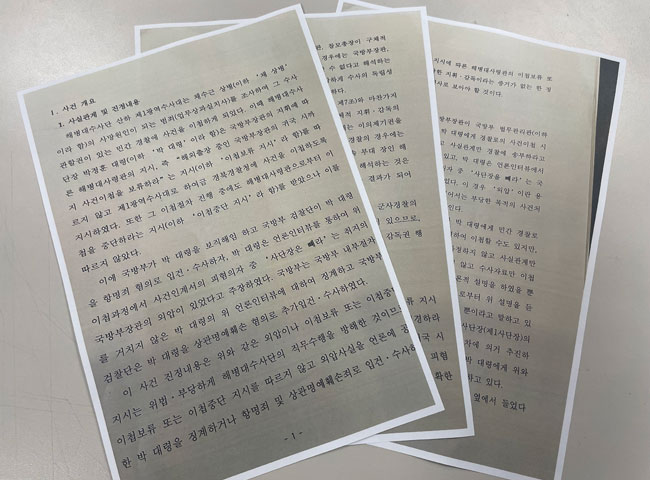 1. 사건 개요
1. 사실관계 및 진정내용
해병대수사단 산하 제1광역수사대는 채수근 상병(이하 '채 상병'
이라 함)의 사망원인이 되는 범죄(업무상과실치사)를 조사하여 그 수사
관할권이 있는 민간 경찰에 사건을 이첩하게 되었다. 이때 해병대수사
단장 박정훈 대령(이하 '박 대령'이라 함)은 국방부장관의 지휘에 따
른 해병대사령관의 지시, 즉 "해외출장 중인 국방부장관의 귀국 시까
지 사건이첩을 보류하라"는 지시(이하 '이첩보류 지시'라 함)를 따
르지 않고 제1광역수사대로 하여금 경북경찰청에 사건을 이첩하도록
지시하였다. 또한 그 이첩절차 진행 중에도 해병대사령관으로부터 이
첩을 중단하라는 지시(이하 '이첩중단 지시'라 함)를 받았으나 이를
따르지 않았다.
이에 국방부가 박 대령을 보직해임 하고 국방부 검찰단이 박 대령
을 항명죄 혐의로 입건·수사하자, 박 대령은 언론인터뷰를 통하여 위
이첩과정에서 사건인계서의 피혐의자 중 '사단장은 빼라'는 취지의
국방부장관의 외압이 있었다고 주장하였다. 국방부는 국방부 내부절차
를 거치지 않은 박 대령의 위 언론인터뷰에 대하여 징계하고 국방부
검찰단은 박 대령을 상관명예훼손 혐의로 추가입건·수사하였다.
이 사건 진정내용은 위와 같은 외압이나 이첩보류 또는 이첩중단
지시는 위법·부당하게 해병대수사단의 직무수행을 방해한 것이므로
이첩보류 또는 이첩중단 지시를 따르지 않고 외압사실을 언론에 공
한 박 대령을 징계하거나 항명죄 및 상관명예훼손죄로 입건·수사하
- 1 -
참모총장이 구체적
경우에는 국방부장관,
수 없다고 해석하는
하게 수사의 독립성
제7조)와 마찬가지
지휘·감독의
는 이의제기권을
경찰의 경우에는
부대 장인 해
해석하는 것은
결과가 되어
군사경찰의
있으므로,
감독권 행
지시
경하라
국 시
피혐
확한
지시에 따른 해병대사령관의 이첩보류 또
한 지휘·감독이라는 증거가 없는 한 정
사로 보아야 할 것이다.
부장관이 국방부 법무관리관(이하
박 대령에게 경찰로의 사건이첩 시
고 사실관계만 경찰에 송부하라고
있고, 박 대령은 언론인터뷰에서
자 중 '사단장을 빼라'는 국
있다. 이 경우 '외압'이란 용
어서는 부당한 목적의 사건처
인다.
박 대령에게 민간 경찰로
하여 이첩할 수도 있지만,
정하지 않고 사실관계만
고 수사자료만 이첩
론적 설명을 하였을 뿐
로부터 위 설명을 듣
뿐이라고 말하고 있
사단장(제1사단장)의
자에 의거 추진하
박 대령에게 위와
하고 있다.
옆에서 들었다